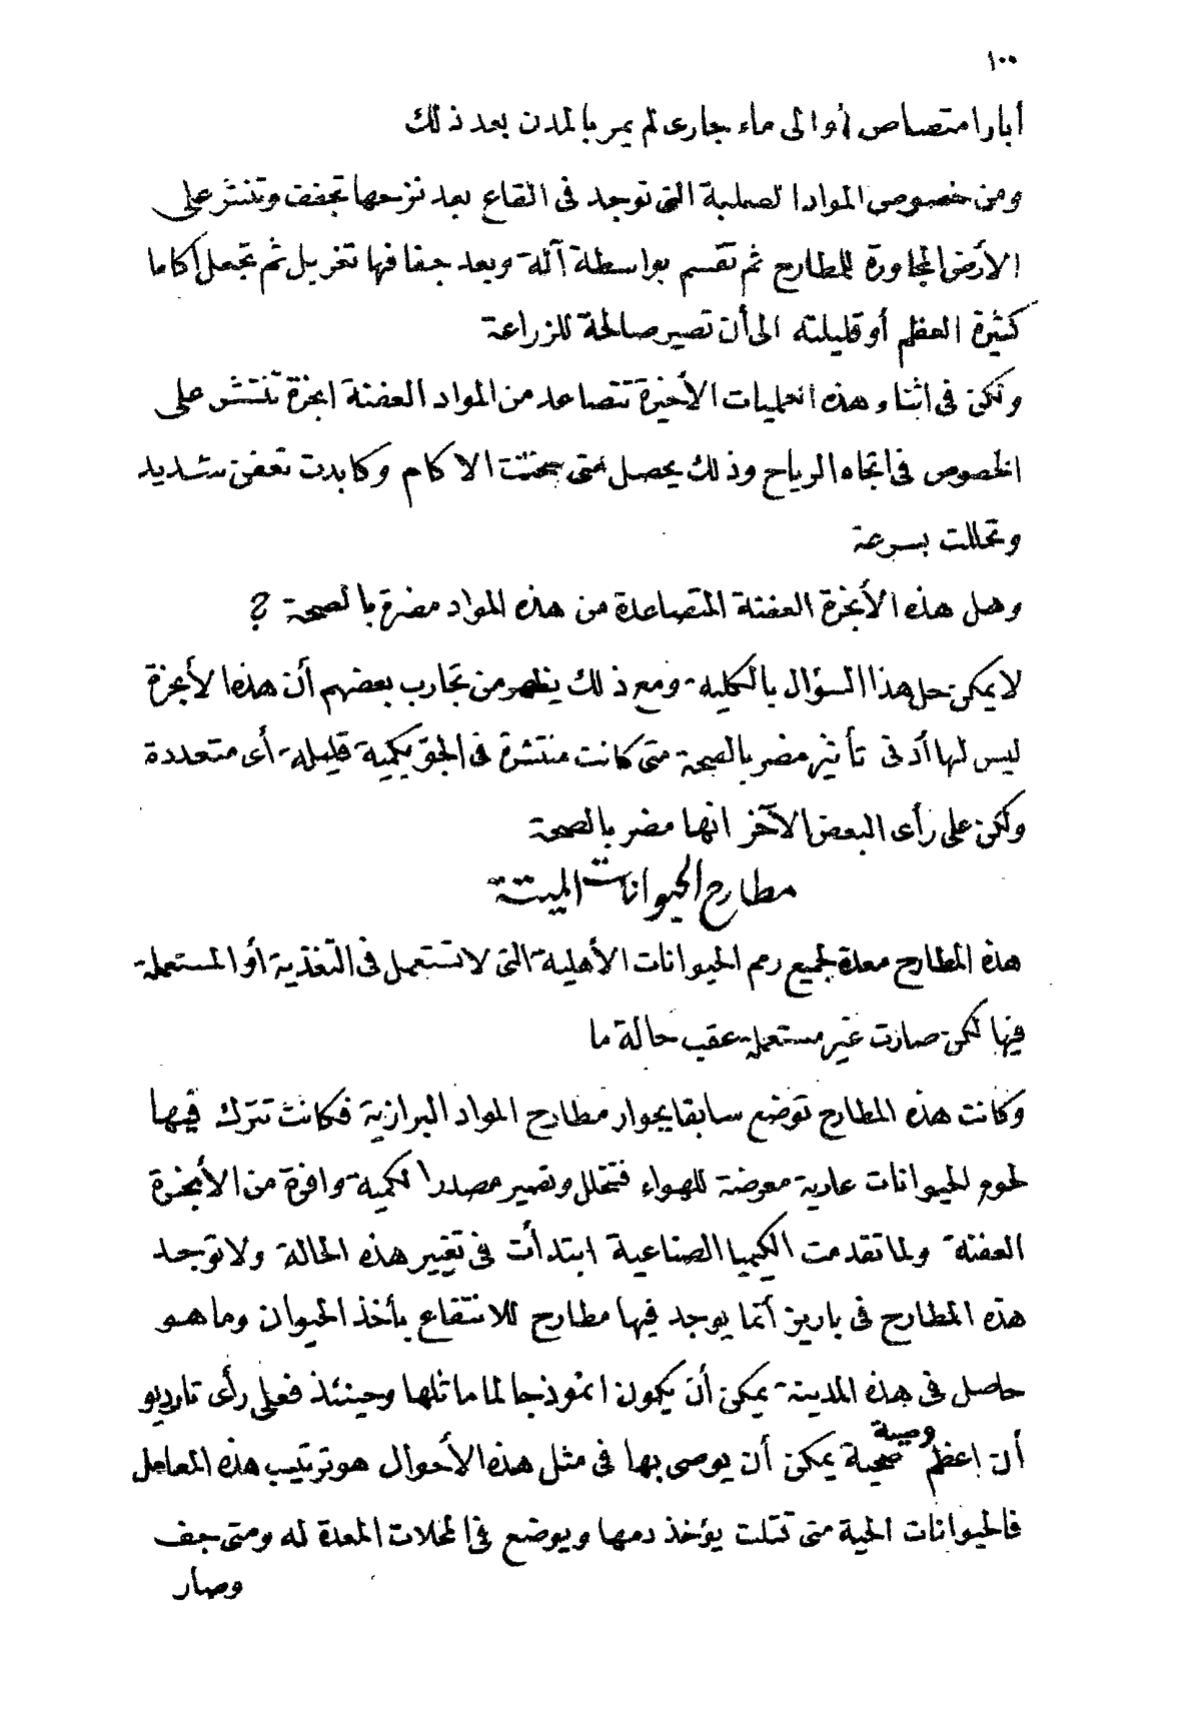 ١٠٠
أبار امتصاص أو الى ماء جارى لم يمر بالمدن بعد ذلك
ومن خصوص المواد الصلبة التى توجد فى القاع بعد نزحها تجفف وتنشر على
الأرض المجاورة للمطارح ثم تقسم بواسطة آلة وبعد جفافها تغربل ثم تجعل أكاما
كثيرة العظم أو قليلته الى أن تصير صالحة للزراعة
ولكن فى اثناء هذه العمليات الأخيرة تتصاعد من المواد العفنة ابخرة تنتشر على
الخصوص فى اتجاه الرياح وذلك يحصل متى سخنت الاكام وكابدت تعفن شديد
وتحللت بسرعة
وهل هذه الأبخرة العفنة المتصاعدة من هذه المواد مضرة بالصحة ؟
لا يمكن حل هذا السؤال بالكلية ومع ذلك يظهر من تجارب بعضهم أن هذه الأبخرة
ليس لها أدنى تأثير مضر بالصحة متى كانت منتشرة فى الجو بكمية قليلة أى متعددة
ولكن على رأى البعض الآخر انها مضر بالصحة
مطارح الحيوانات الميتة
هذه المطارح معدة لجميع رمم الحيوانات الأهلية التى لا تستعمل فى التغذية أو المستعملة
فيها لكن صارت غير مستعملة عقب حالة ما
وكانت هذه المطارح توضع سابقا بجوار مطارح المواد البرازية فكانت تترك فيها
لحوم الحيوانات عارية معرضة للهواء فتتحلل وتصير مصدرا لكمية وافرة من الأبخرة
العفنة ولما تقدمت الكيميا الصناعية ابتدأت فى تغيير هذه الحالة ولا توجد
هذه المطارح فى باريز أنما يوجد فيها مطارح للانتفاع بأخذ الحيوان وما هو
حاصل فى هذه المدينة يمكن أن يكون انموذجا لما ماثلها وحينئذ فعلى رأى تارديو
أن اعظم وصية صحية يمكن أن يوصى بها فى مثل هذه الأحوال هو ترتيب هذه المعامل
فالحيوانات الحية متى قتلت يؤخذ دمها ويوضع فى المحلات المعدة له ومتى جف
وصار